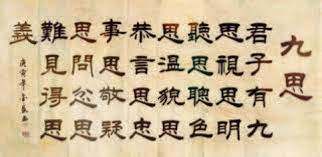 九思
君子有九
思視思明
聽思聰色
思溫貌思
恭言思忠
事思敬疑
思問忿思
難見得思
義